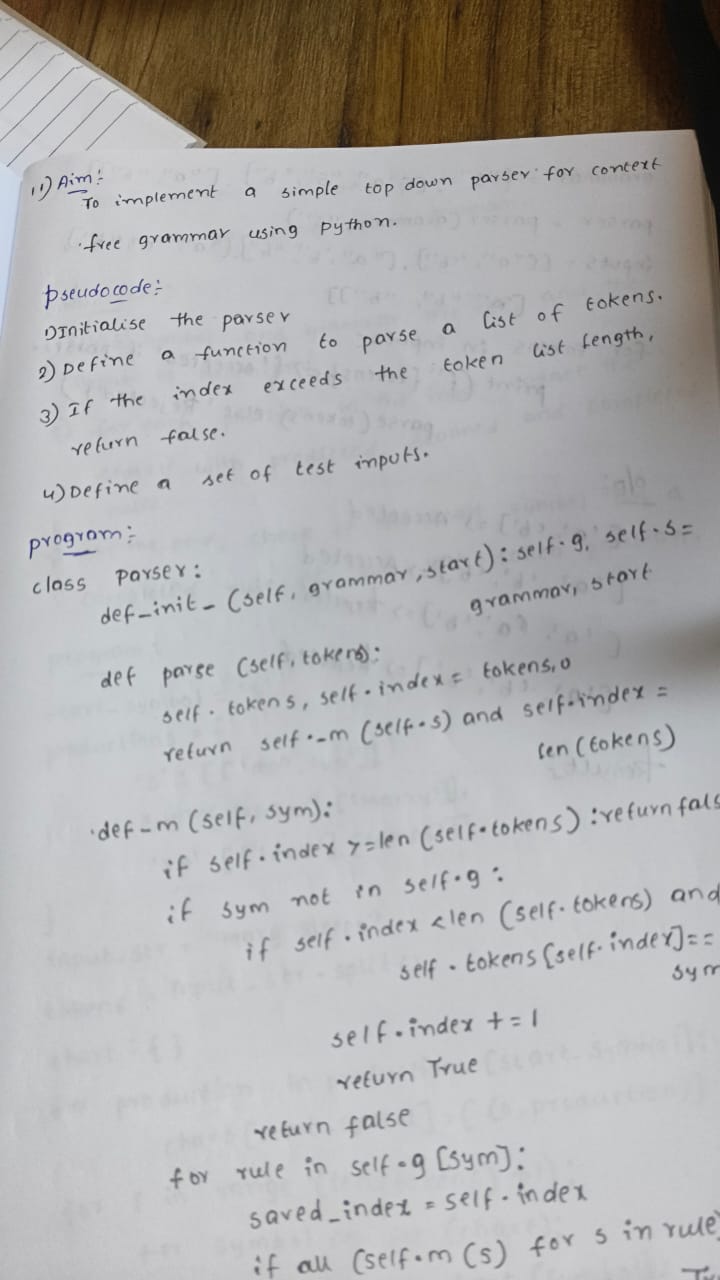 11) Aim:
To implement a simple top down parser for context
free grammar using python.
pseudocode:
1) Initialise the parser
2) Define a function to parse a list of tokens.
3) If the index exceeds the token list length,
return false.
4) Define a set of test inputs.
program:
class parser:
def_init_ (self, grammar, start): self.g, self.s=
grammar, start
def parse (self, tokens):
self.tokens, self.index = tokens, 0
return self._m (self.s) and self.index =
len (tokens)
def_m (self, sym):
if self.index >=len (self.tokens) :return fals
if sym not in self.g :
if self.index <len (self.tokens) and
self.tokens [self.index]==
sym
self.index +=1
return True
return false
for rule in self.g [sym]:
saved_index = self.index
if all (self.m (s) for s in rule)